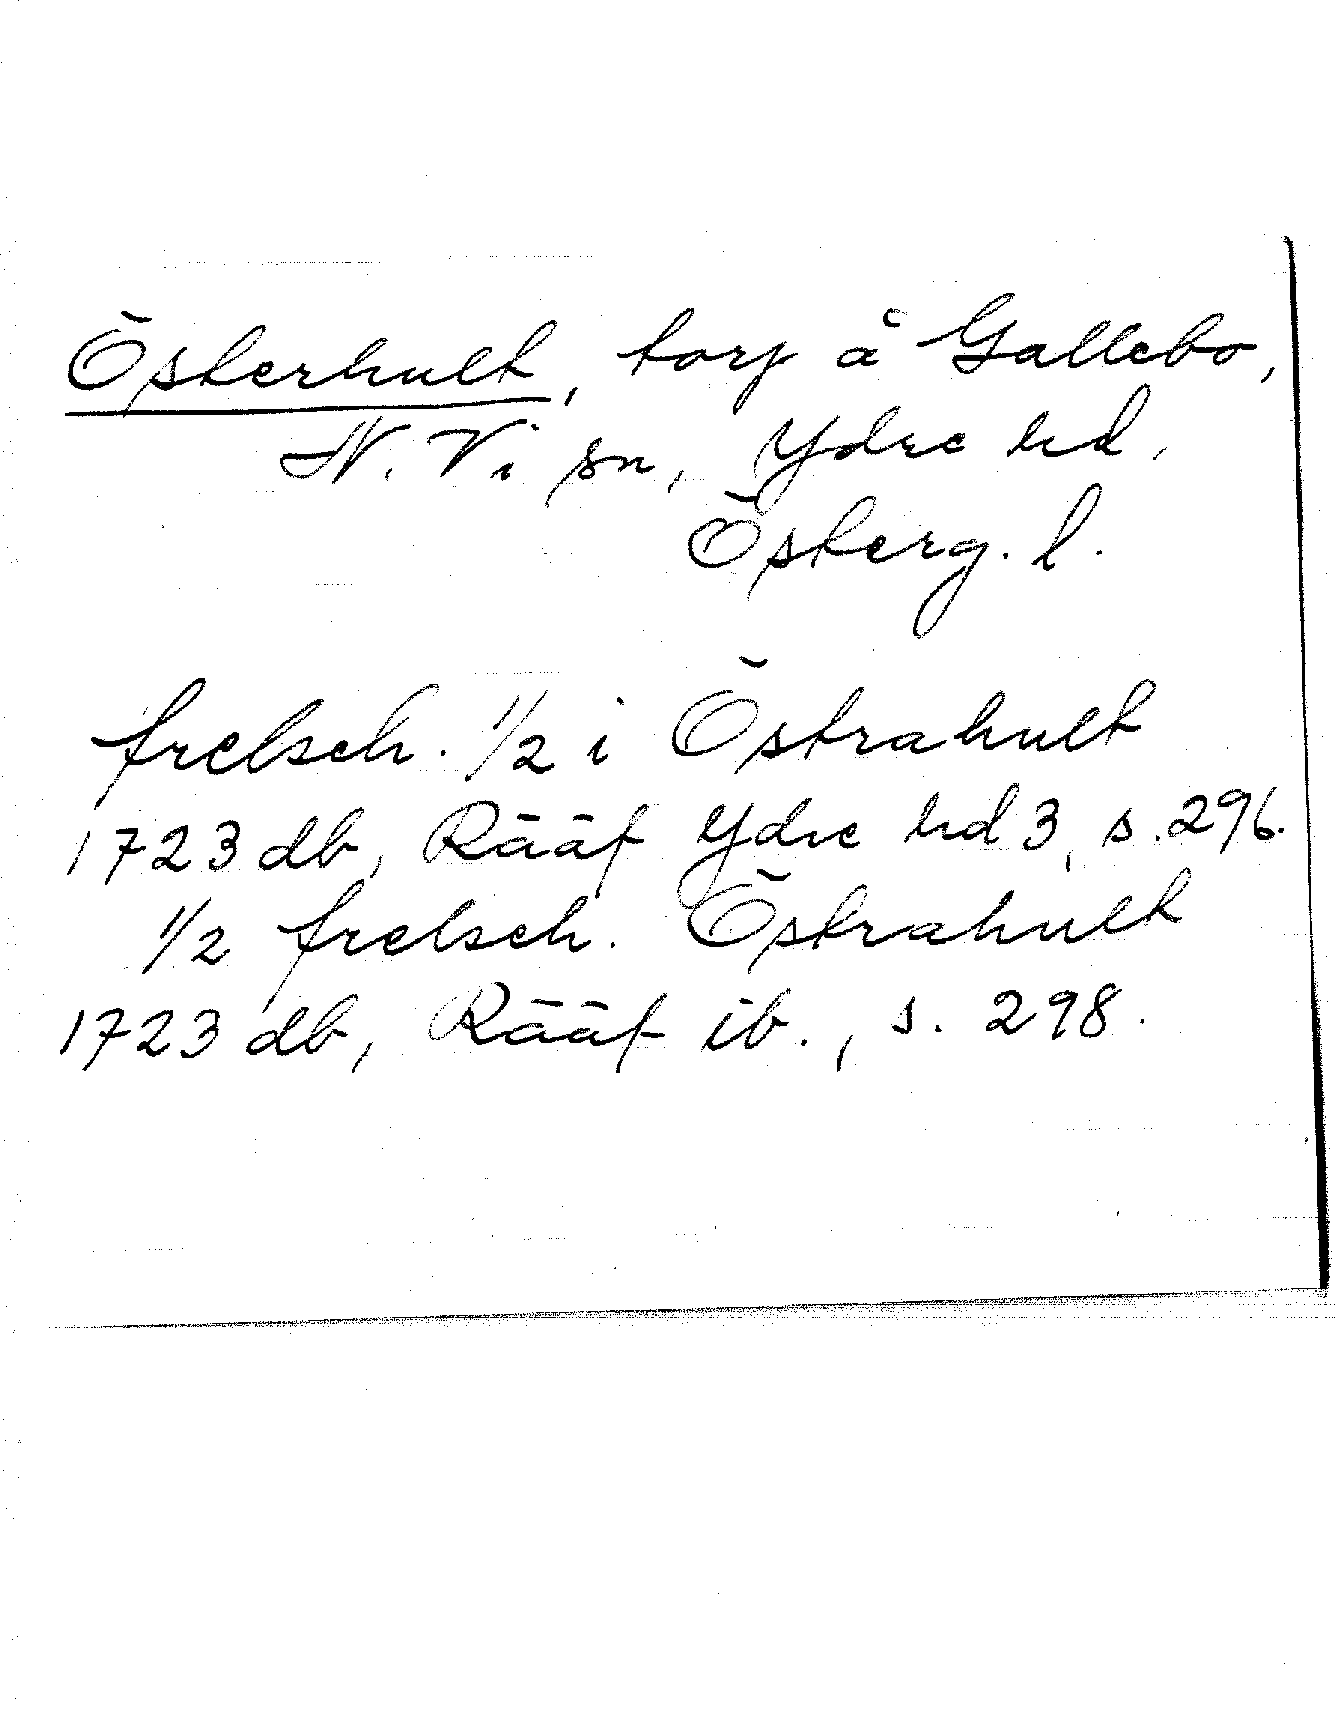 Österhult, torp å Gallebo,
N. Vi sn, Ydre hd,
Österg. l.
frelseh. 1/2 i Östrahult
1723 db, Rääf Ydre hd 3, s. 296.
1/2 frelseh. Östrahult
1723 db, Rääf ib., s. 298.